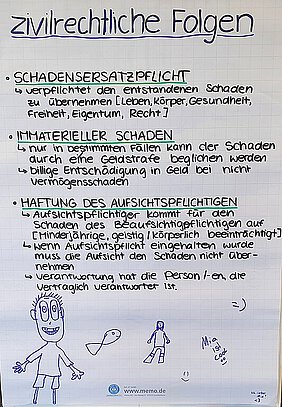 zivilrechtliche Folgen
• SCHADENSERSATZPFLICHT
↳ verpflichtet den entstandenen Schaden
zu übernehmen [Leben, Körper, Gesundheit,
Freiheit, Eigentum, Recht]
• IMMATERIELLER SCHADEN
↳ nur in bestimmten Fällen kann der Schaden
durch eine Geldstrafe beglichen werden
↳ billige Entschädigung in Geld bei nicht
Vermögensschaden
• HAFTUNG DES AUFSICHTSPFLICHTIGEN
↳ Aufsichtspflichtiger kommt für den
Schaden des Beaufsichtigpflichtigen auf
[Minderjährige, geistig/körperlich beeinträchtigt]
↳ wenn Aufsichtspflicht eingehalten wurde
muss die Aufsicht den Schaden nicht über-
nehmen
↳ Verantwortung hat die Person/-en, die
vertraglich verantwortet ist.
=)
Mia
ist
cool
:)
www.memo.de